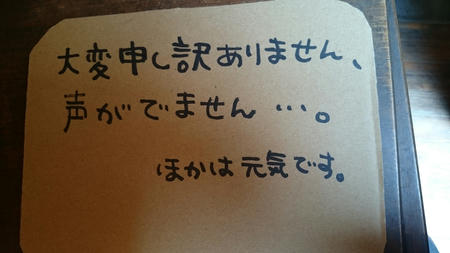 大変申し訳ありません、
声がでません…。
ほかは元気です。